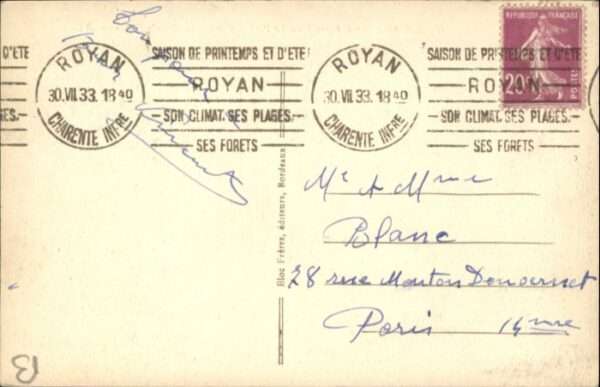 D'ETE
ES.-
ROYAN
30.VII.33.18 40
CHARENTE INFRE
SAISON DE PRINTEMPS ET D'ETE
ROYAN
SON CLIMAT. SES PLAGES.
SES FORETS
ROYAN
30.VII.33.18 40
CHARENTE INFRE
SAISON DE PRINTEMPS ET D'ETE
ROYAN
SON CLIMAT. SES PLAGES.-
SES FORETS
REPUBLIQUE FRANÇAISE
20c
POSTES
Bloc Frères, éditeurs, Bordeaux
Mr & Mme
Blanc
28 rue Mouton Duvernet
Paris 14me
B